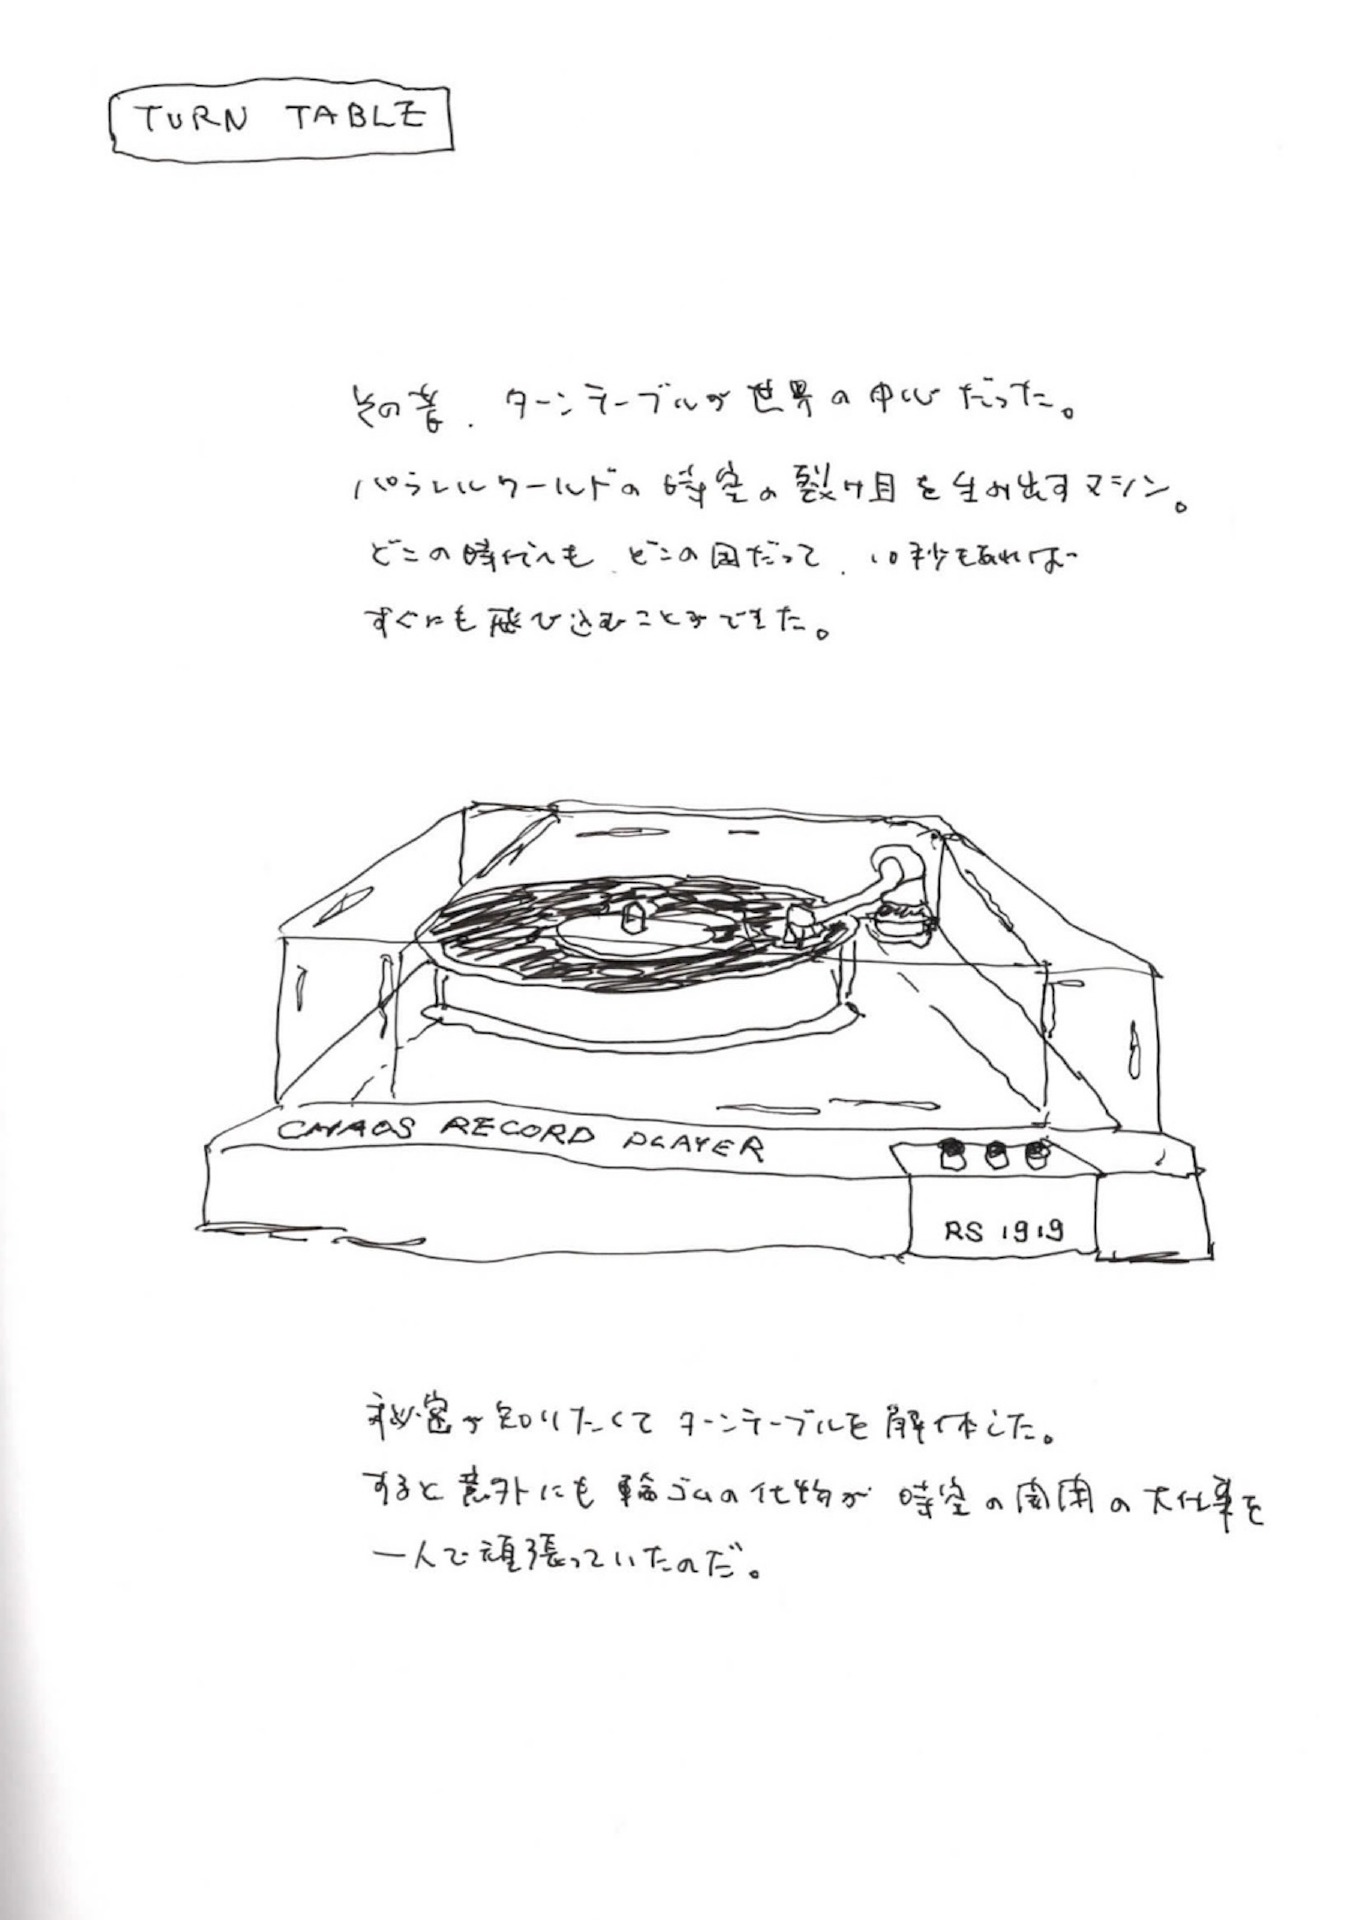 TURN TABLE
その昔、ターンテーブルが世界の中心だった。
パラレルワールドの時空の裂け目を生み出すマシン。
どこの時代へも、どこの国だって、10秒もあれば
すぐにも飛び込むことができた。
CHAOS RECORD PLAYER
RS 1919
秘密が知りたくてターンテーブルを解体した。
すると意外にも輪ゴムの化物が時空の開閉の大仕事を
一人で頑張っていたのだ。